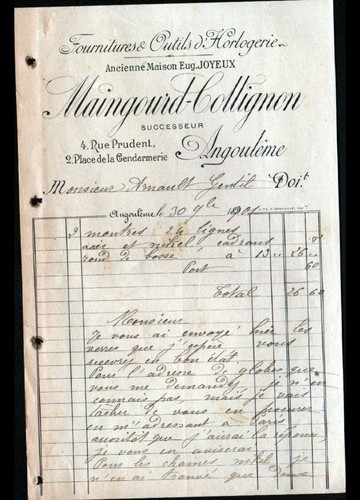 Fournitures & Outils d'Horlogerie
Ancienne Maison Eug. JOYEUX
Maingourd-Collignon
SUCCESSEUR
4. Rue Prudent,
2. Place de la Gendarmerie
Angoulême
Monsieur Arnault Gentil Doit
Angoulême, le 30 9bre 1901
2 montres 24 lignes
acier et nikel cadrans
rond de bosse à 13 " 26 "
Port 60
Total 26 60
Monsieur
Je vous ai envoyé hier les
verres que j'espère vous
recevrez en bon état.
Pour l'adresse de globes que
vous me demandez, je n'en
connais pas, mais je vais
tâcher de vous en procurer
en m'adressant à Paris
aussitôt que j'aurai la réponse,
je vous en aviserai.
Pour les chaines nikel je
n'en ai trouvé que deux